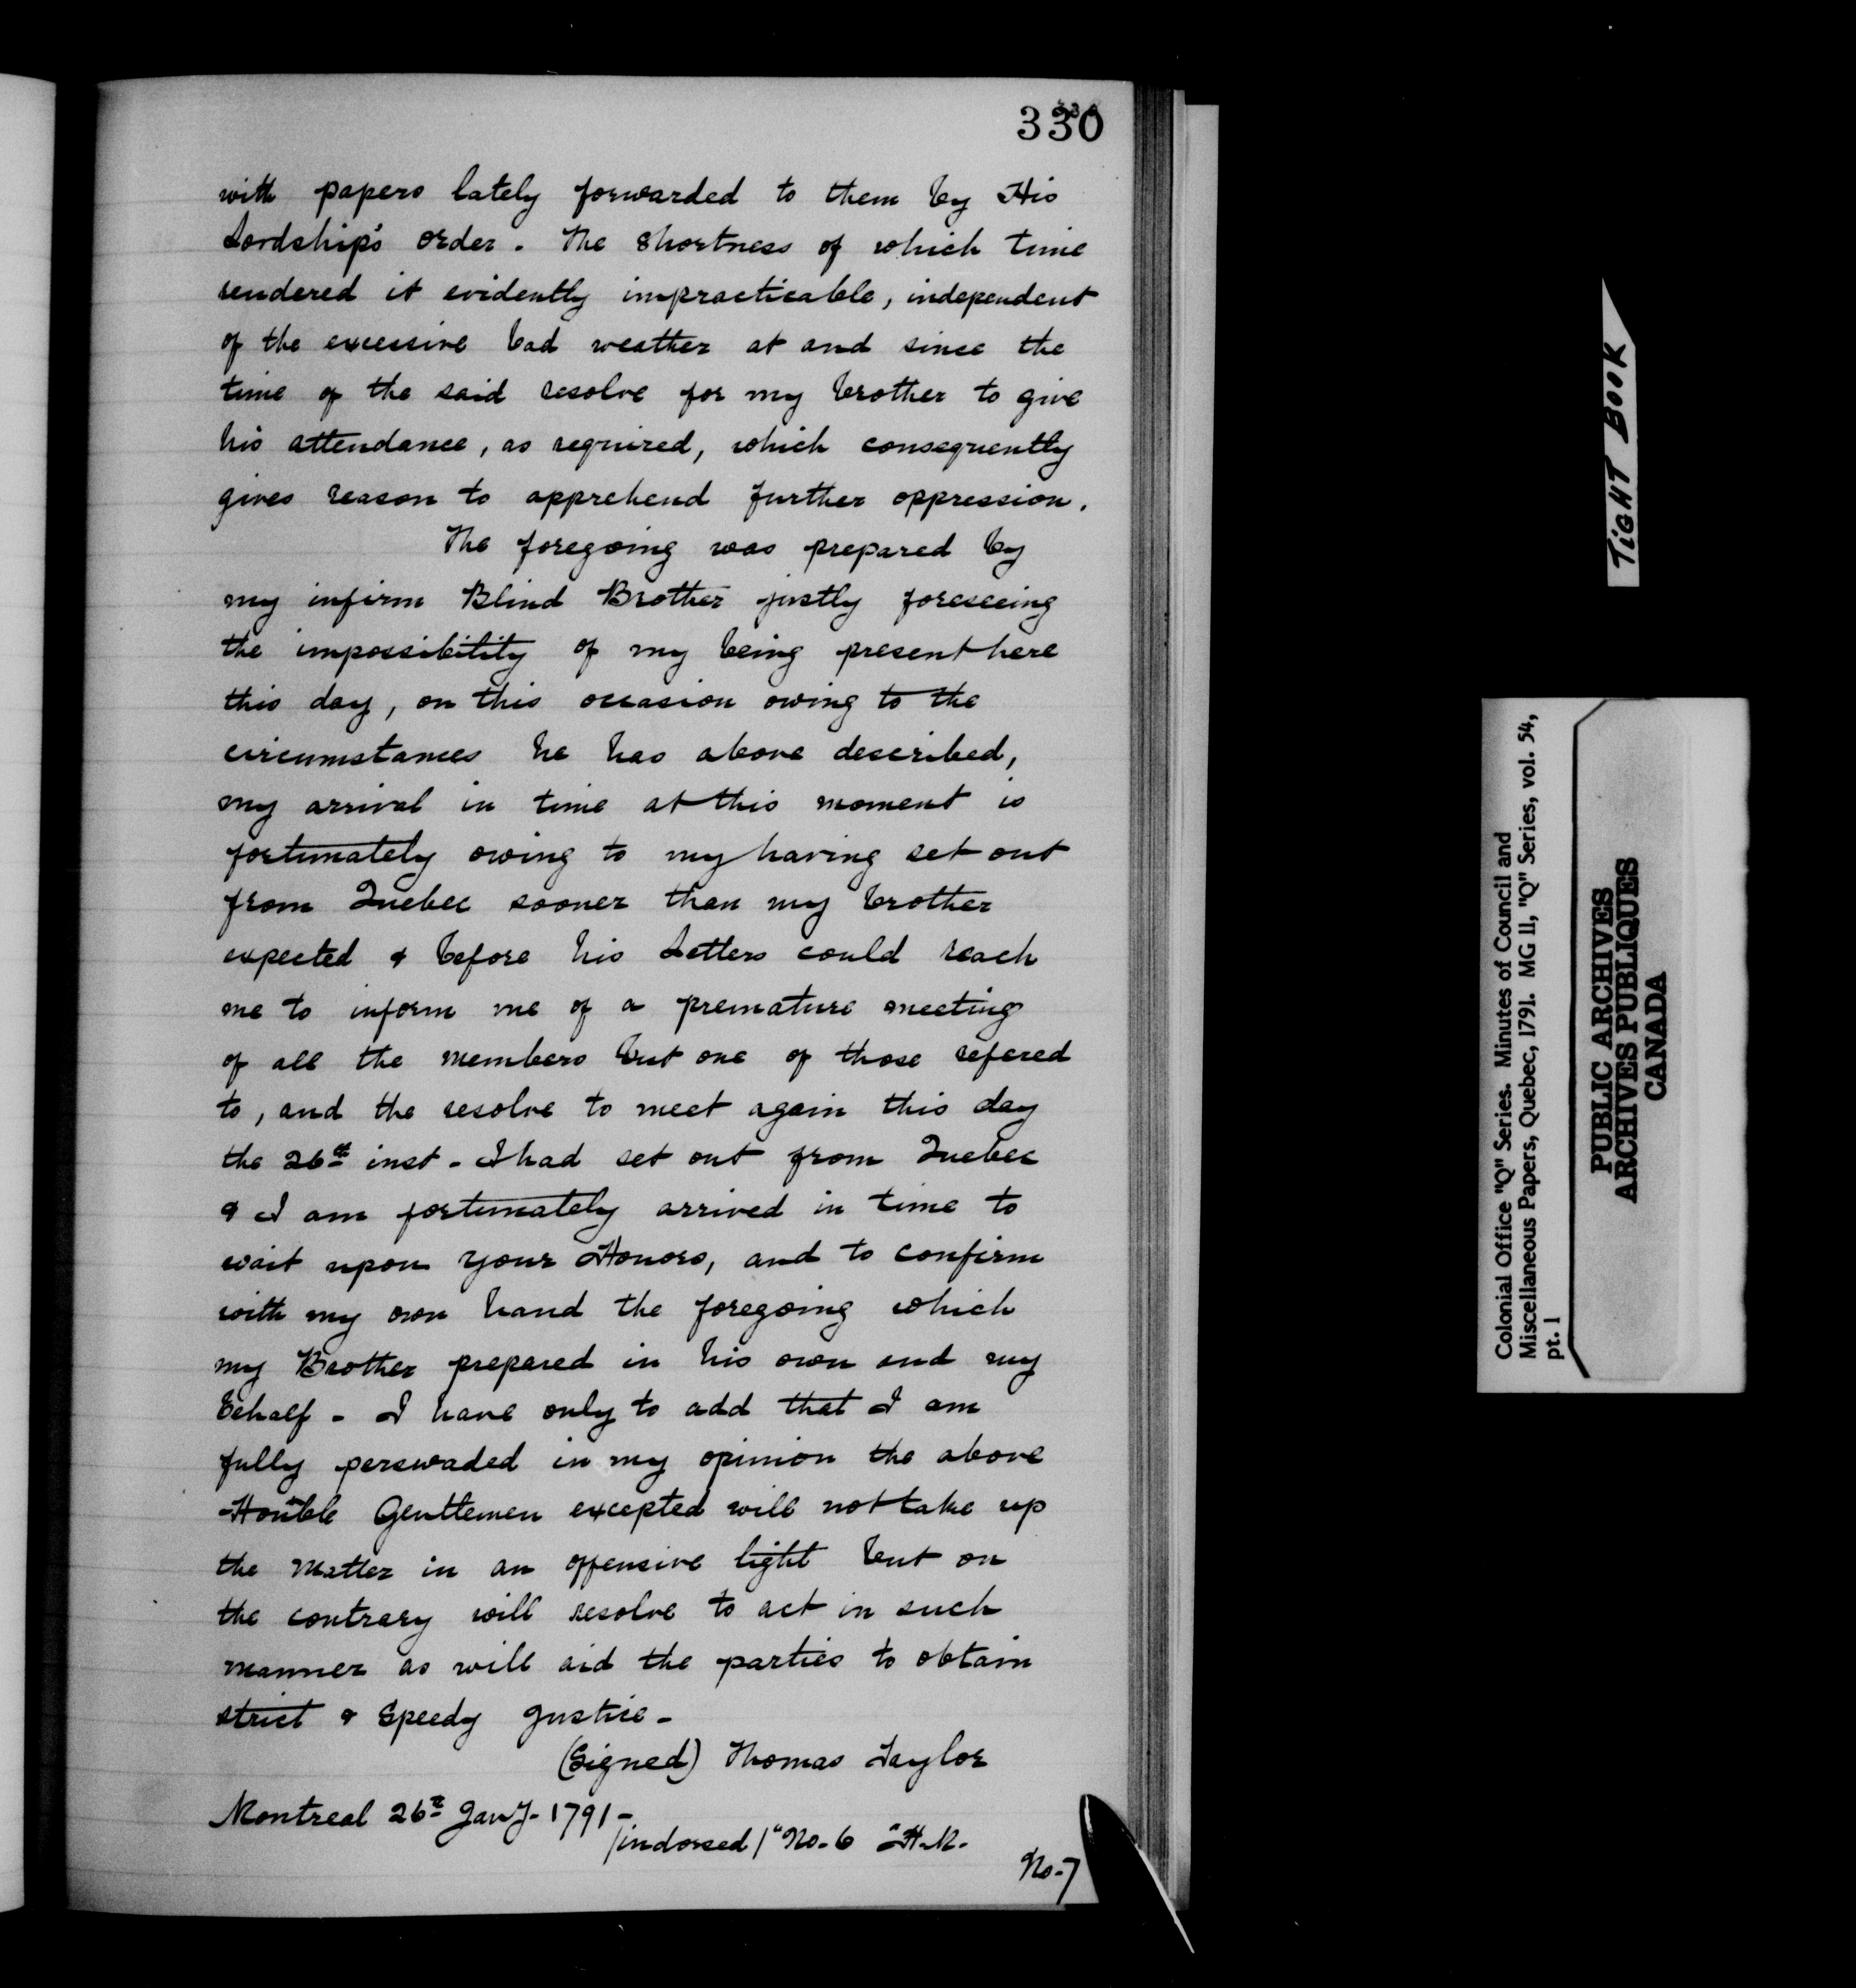 330
with papers lately forwarded to them by His
Lordship's order. The shortness of which time
rendered it evidently impracticable, independent
of the excessive bad weather at and since the
time of the said resolve for my brother to give
his attendance, as required, which consequently
gives reason to apprehend further oppression.
The foregoing was prepared by
my infirm Blind Brother justly foreseeing
the impossibility of my being present here
this day, on this occasion owing to the
circumstances he has above described,
my arrival in time at this moment is
fortunately owing to my having set out
from Quebec sooner than my brother
expected & before his Letters could reach
me to inform me of a premature meeting
of all the members but one of those refered
to, and the resolve to meet again this day
the 26th inst - I had set out from Quebec
& I am fortunately arrived in time to
wait upon your Honors, and to confirm
with my own hand the foregoing which
my Brother prepared in his own and my
behalf - I have only to add that I am
fully perswaded in my opinion the above
Honble Gentlemen excepted will not take up
the matter in an offensive light but on
the contrary will resolve to act in such
manner as will aid the parties to obtain
strict & speedy justice -
(Signed) Thomas Taylor
Montreal 26th Jany - 1791 -
/indorsed/ "No. 6 "H.M.
No. 7
TIGHT BOOK
Colonial Office "Q" Series. Minutes of Council and
Miscellaneous Papers, Quebec, 1791. MG 11, "Q" Series, vol. 54,
pt. 1
PUBLIC ARCHIVES
ARCHIVES PUBLIQUES
CANADA